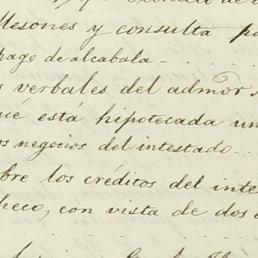 Mesones y consulta
pago de alcabala
verbales del admor
está hipotecada un
negocios del intestado
los créditos del inte
checo, con vista de dos